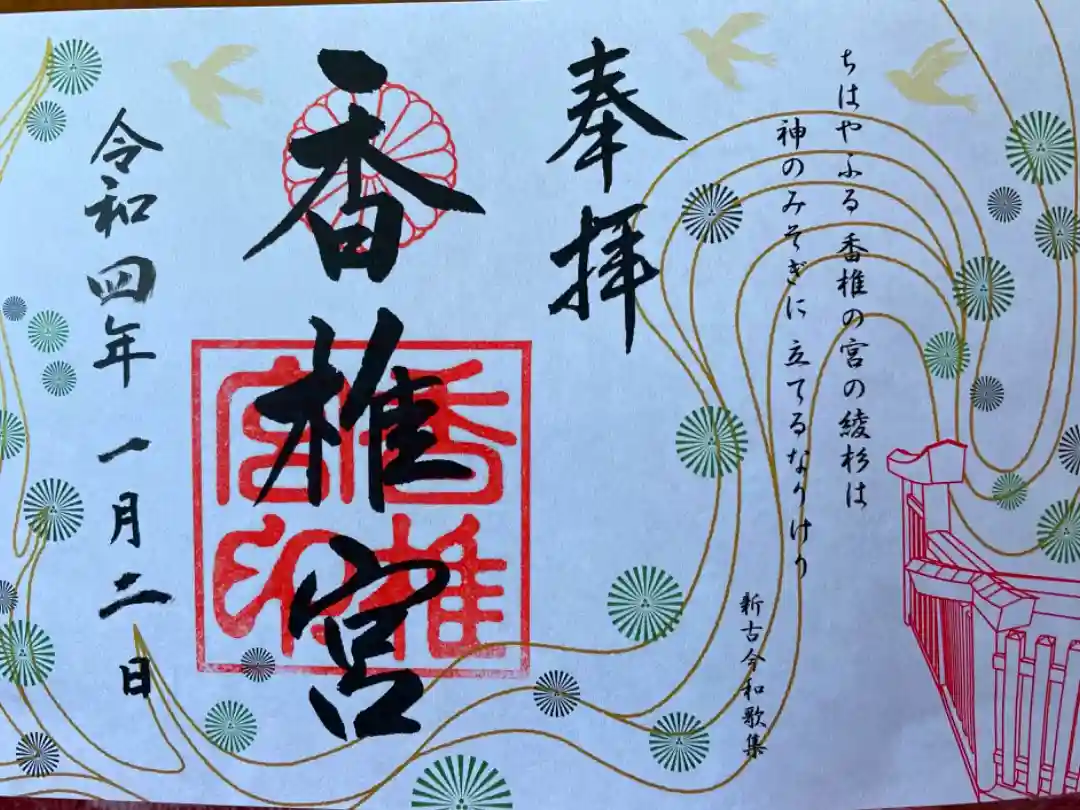 奉拝
ちはやふる 香椎の宮の綾杉は
神のみそぎに 立てるなりけり
新古今和歌集
香椎宮
香椎宮印
令和四年 一月二日